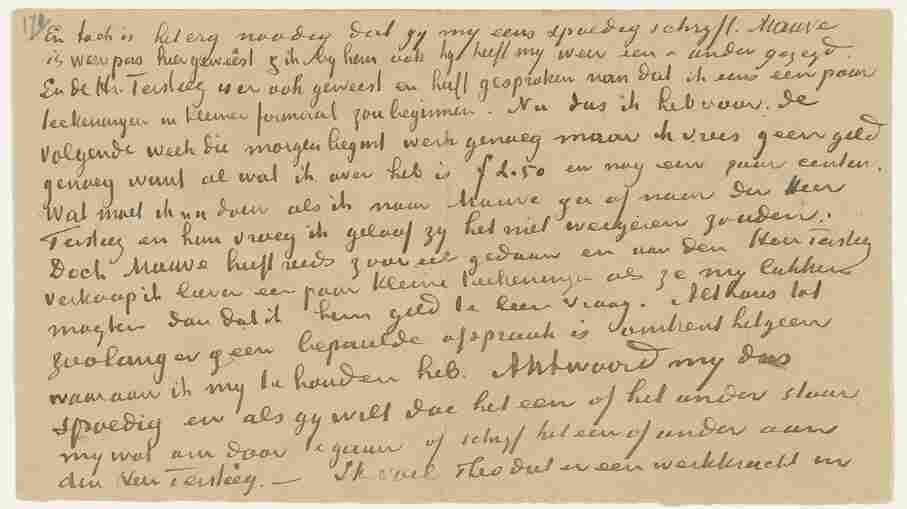 En toch is het erg noodig dat gy my eens spoedig schryft. Mauve
is weer pas hier geweest & ik by hem ook hy heeft my weer een & ander gezegd.
En de Hr. Tersteeg is er ook geweest en heeft gesproken van dat ik eens een paar
teekeningen in kleiner formaat zou beginnen. Nu dus ik heb voor de
volgende week die morgen begint werk genoeg maar ik vrees geen geld
genoeg want al wat ik over heb is f 2.50 en nog een paar centen.
Wat moet ik nu doen als ik naar Mauve ga of naar den Heer
Tersteeg en hun vraag ik geloof zy het niet weigeren zouden.
Doch Mauve heeft reeds zooveel gedaan en aan den Heer Tersteeg
verkoop ik liever een paar kleine teekeningen als ze my lukken
mogten dan dat ik hem geld te leen vraag. Althans tot
zoolang er geen bepaalde afspraak is omtrent hetgeen
waaraan ik my te houden heb. Antwoord my dus
spoedig en als gy wilt doe het een of het ander stuur
my wat om door te gaan of schryf het een of ander aan
den Heer Tersteeg. — Ik voel Theo dat er een werkkracht in